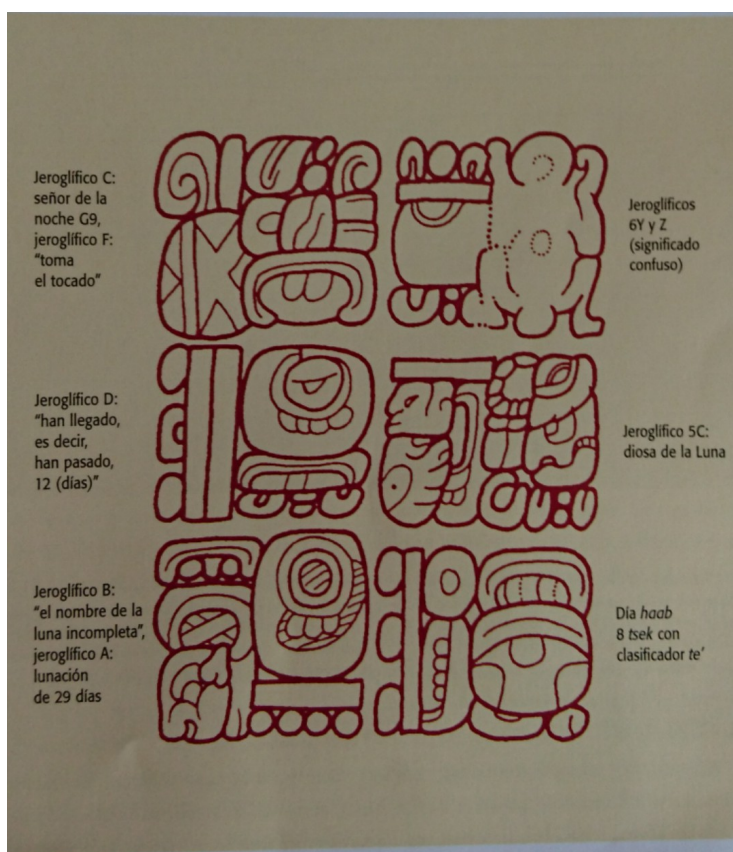 Jeroglífico C:
señor de la
noche G9,
jeroglífico F:
“toma
el tocado”
Jeroglíficos
6Y y Z
(significado
confuso)
Jeroglífico D:
“han llegado,
es decir,
han pasado,
12 (días)”
Jeroglífico 5C:
diosa de la Luna
Jeroglífico B:
“el nombre de la
luna incompleta”,
jeroglífico A:
lunación
de 29 días
Día haab
8 tsek con
clasificador te’